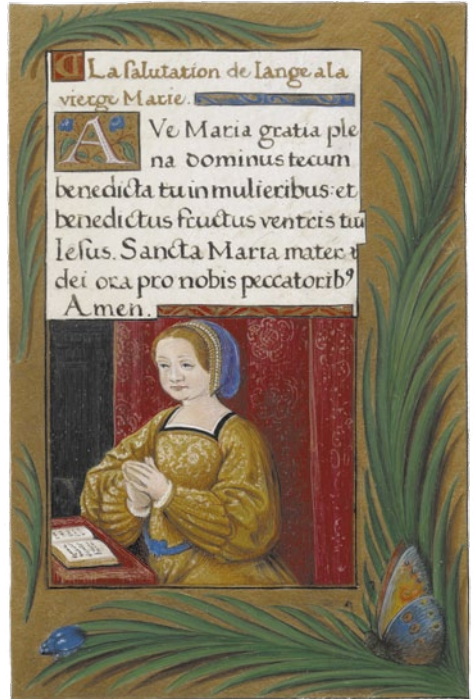 La salutation de lange a la
vierge Marie.
AVe Maria gratia ple
na dominus tecum
benedicta tu in mulieribus: et
benedictus fructus ventris tui
Iesus. Sancta Maria mater
dei ora pro nobis peccatorib⁹
Amen.